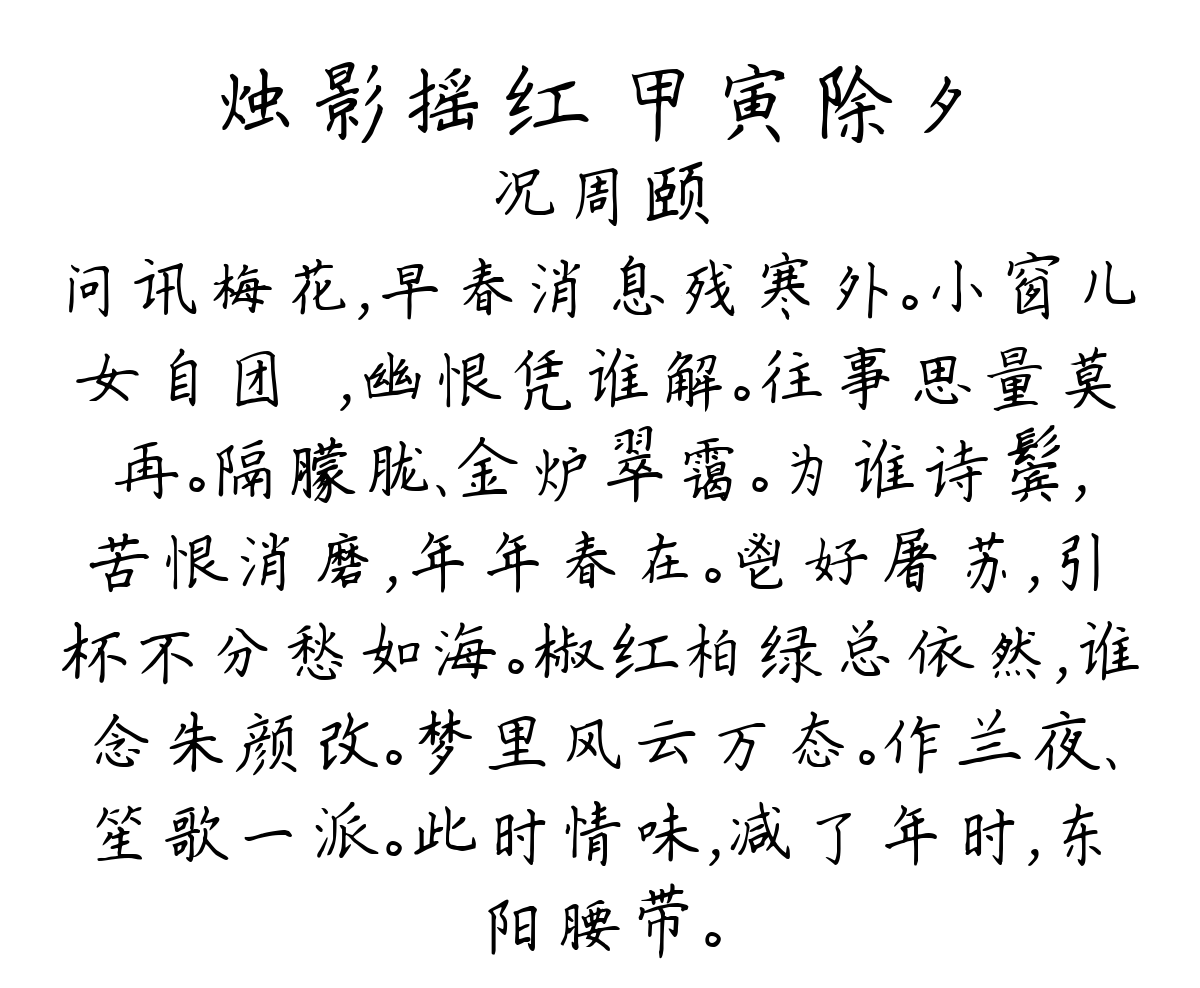 烛影摇红 甲寅除夕
况周颐
问讯梅花,早春消息残寒外。小窗儿
女自团 ,幽恨凭谁解。往事思量莫
再。隔朦胧、金炉翠霭。为谁诗鬓,
苦恨消磨,年年春在。鬯好屠苏,引
杯不分愁如海。椒红柏绿总依然,谁
念朱颜改。梦里风云万态。作兰夜、
笙歌一派。此时情味,减了年时,东
阳腰带。